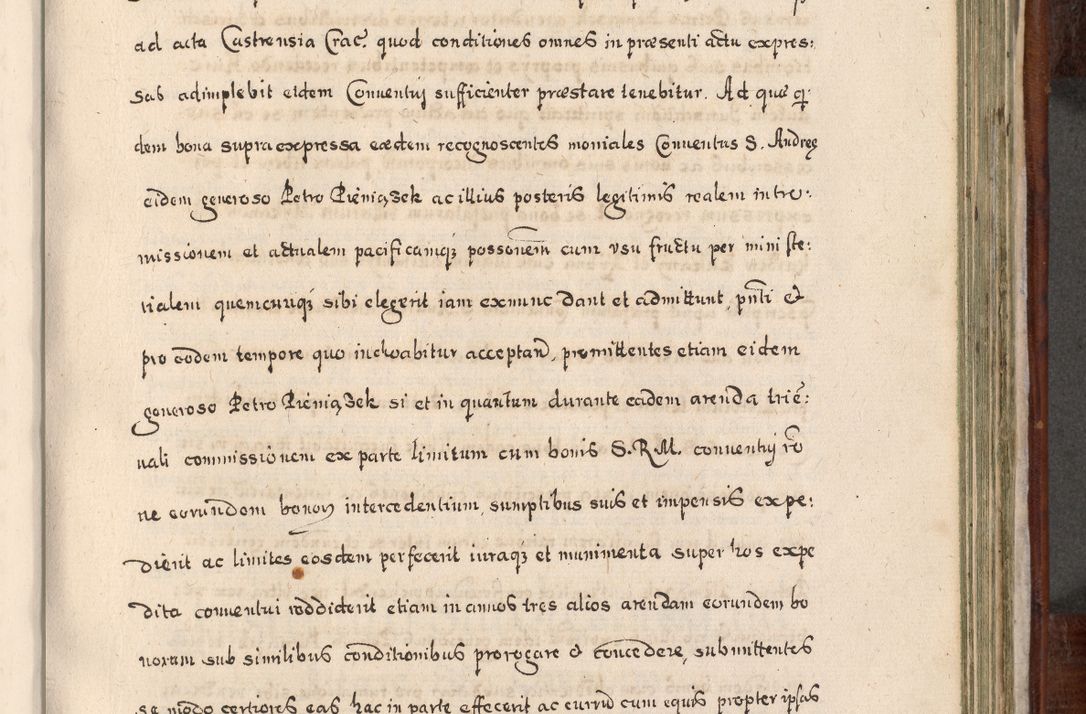 ad acta Castrensia Crac. quod conditiones omnes in præsenti actu expres:
sas adimplebit eidem Conuentuj sufficienter præstare tenebitur. Ad quæ q̃i
dem bona supra expressa eædem recognoscentes moniales Conuentus S. Andreę
eidem generoso Petro Pieniązek ac illius posteris legitimis realem intro:
missionem et actualem pacificamq; possonem cum vsu fructu per ministe:
rialem quemcunq; sibi elegerit iam exnunc dant et admittunt, pñti et
pro eodem tempore quo inchoabitur acceptañ, promittentes etiam eidem
generoso Petro Pieniązek si et in quantum durante eadem arenda triẽ:
nali commissionem ex parte limitum cum bonis S. R. M. conuentuj rõ
ne eorundem bonoꝝ intercedentium, sumptibus suis et impensis expe:
dierit ac limites eosdem perfecerit iuraq; et munimenta super hos expe
dita conuentui reddiderit etiam in annos tres alios arendam eorundem bo
norum sub similibus conditionibus prorogare et concedere, submittentes
se modo certiores eas hac in parte effecerit ac curru cum equis propter ipsas